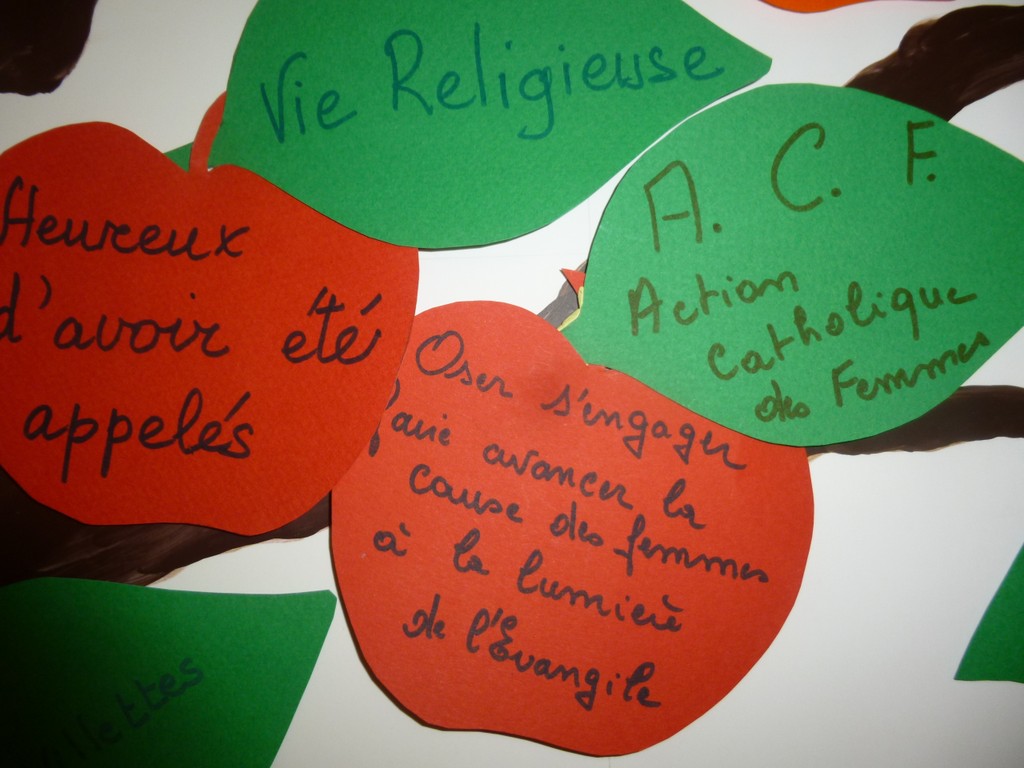 Vie Religieuse
A. C. F.
Action
Catholique
des Femmes
Heureux
d'avoir été
appelés
Oser s'engager
faire avancer la
cause des femmes
à la lumière
de l'Évangile